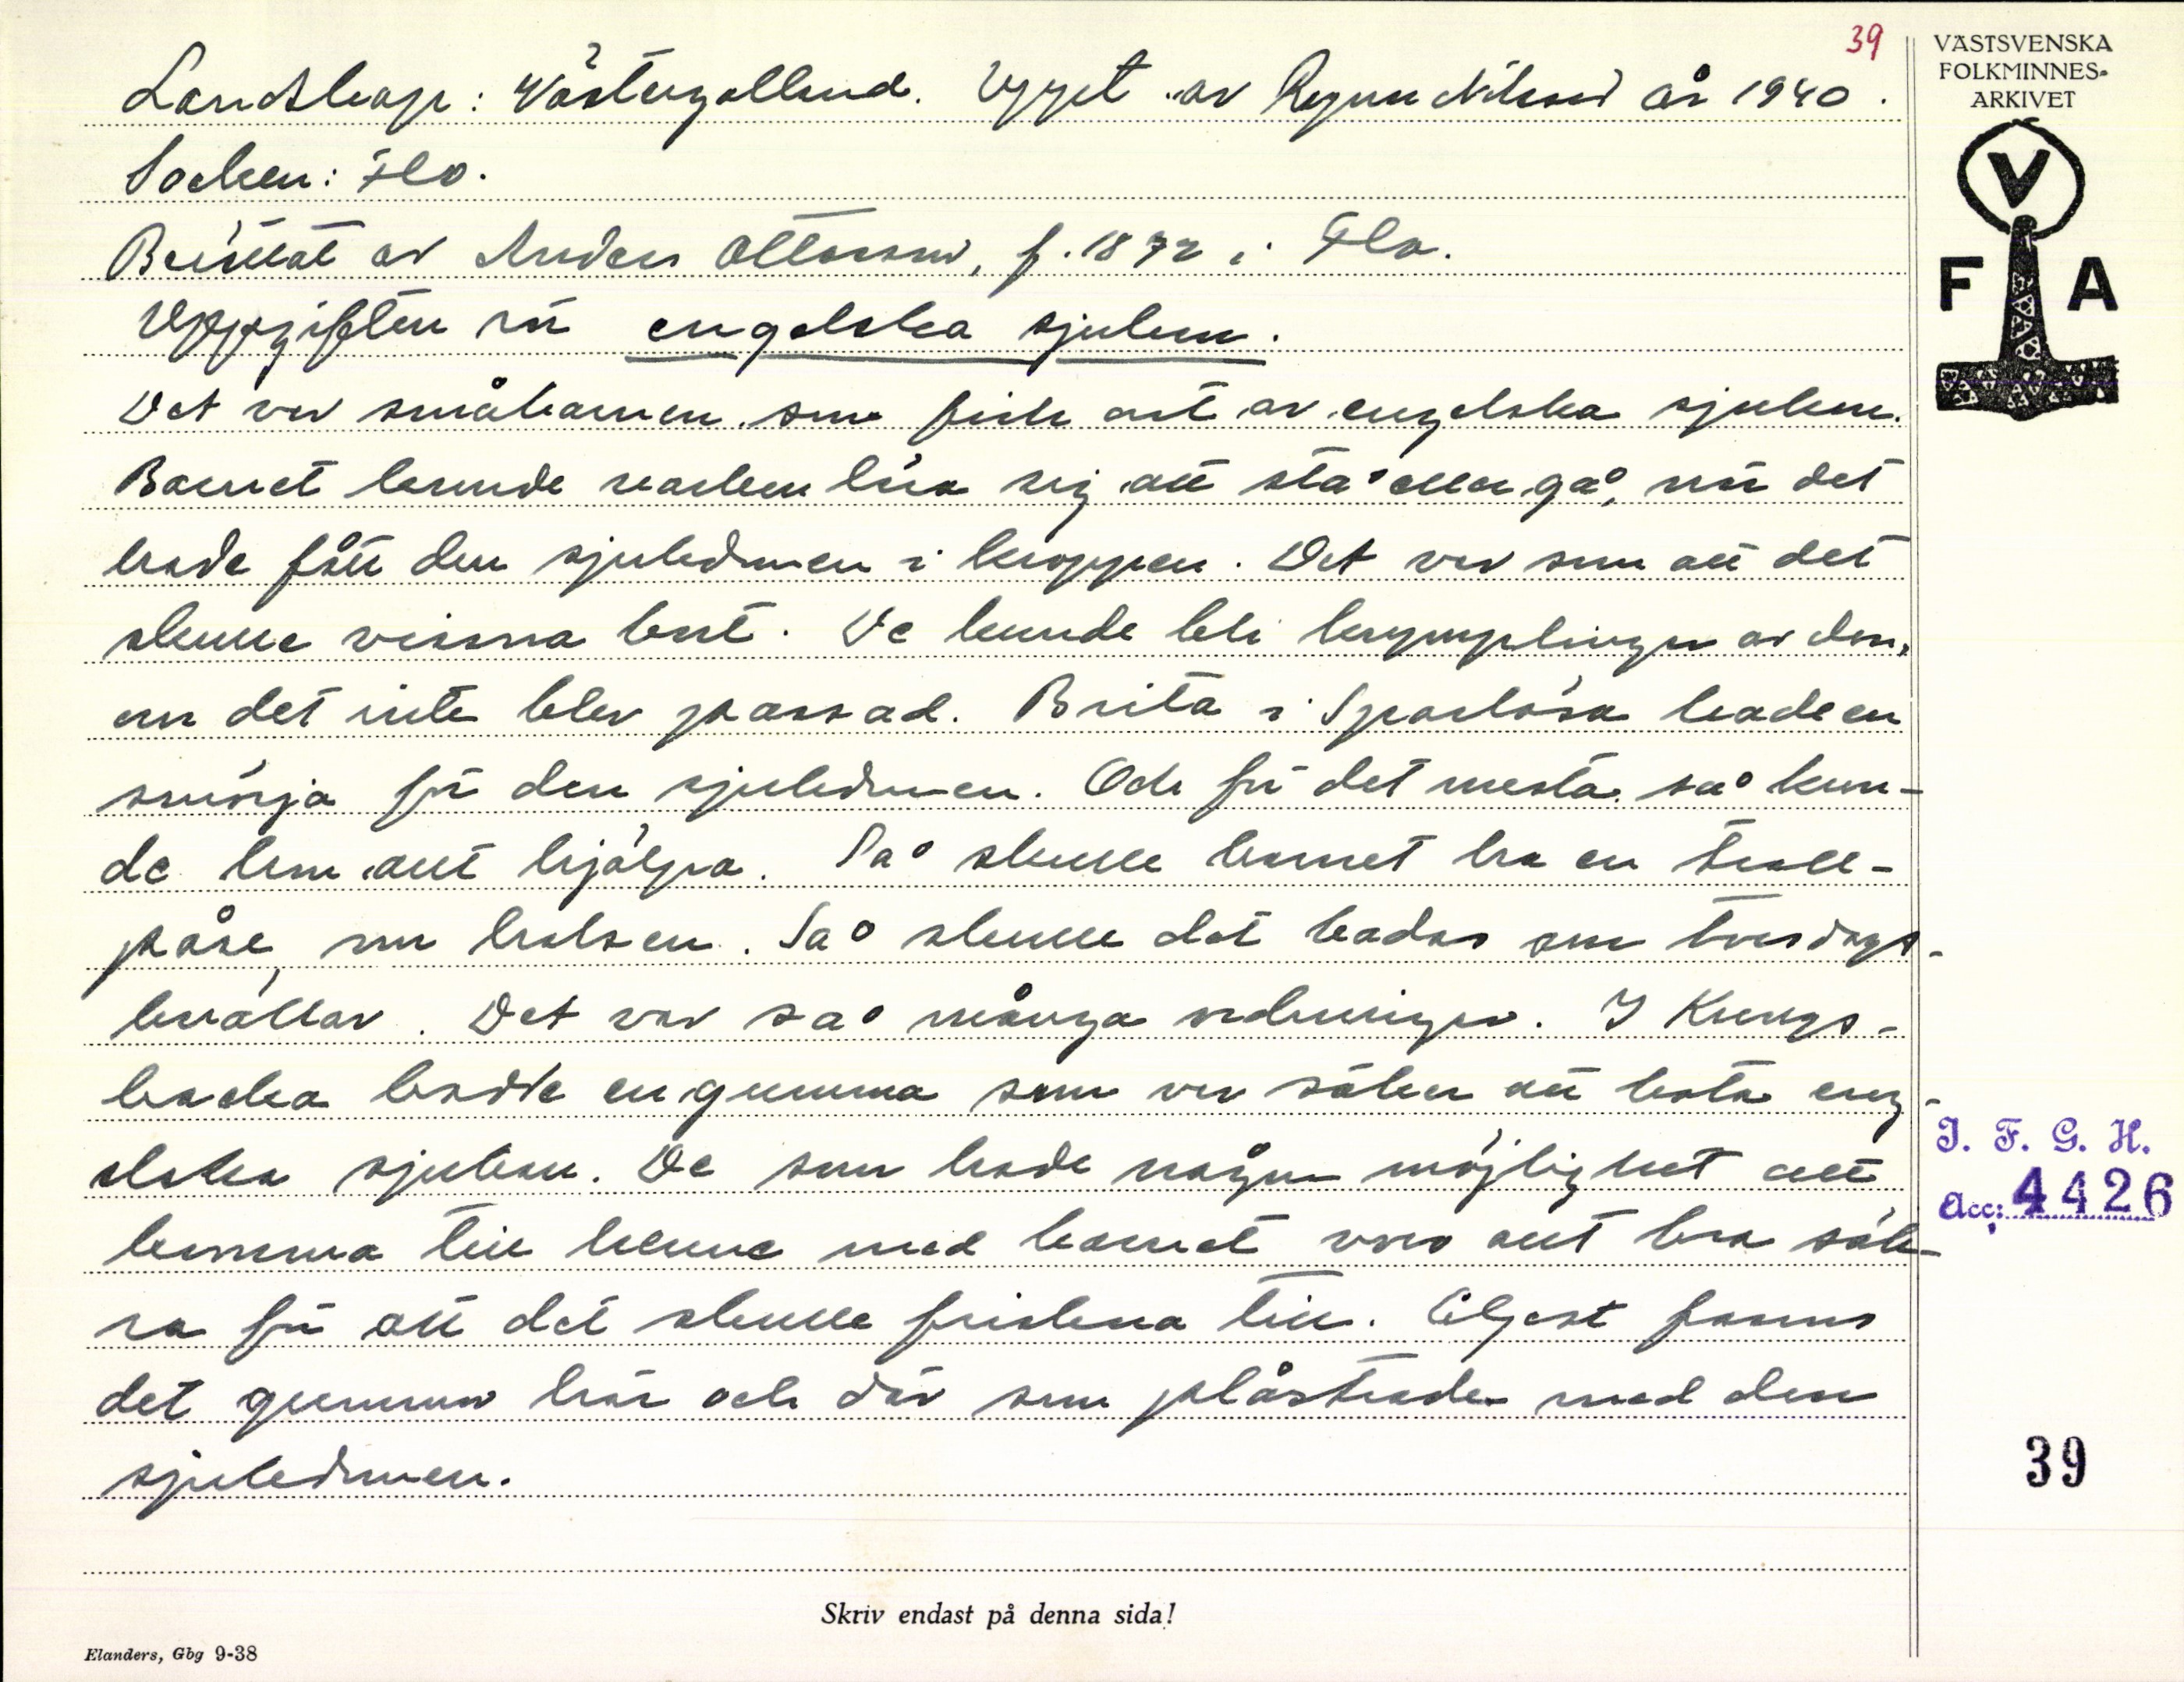 39
VÄSTSVENSKA
FOLKMINNES-
ARKIVET
V
F A
Landskap: Västergötland. Uppt. av Ragnar Nilsson år 1940.
Socken: Flo.
Berättat av Anders Ottosson, f. 1872 i Flo.
Uppgiften rör engelska sjukan.
Det var småbarnen som fick ont av engelska sjukan.
Barnet kunde varken lära sig att stå eller gå, när det
hade fått den sjukdomen i kroppen. Det var som att det
skulle vissna bort. De kunde bli krymplingar av den,
om det inte blev passad. Brita i Sparlösa hade en
smörja för den sjukdomen. Och för det mesta så kun-
de hon allt hjälpa. Så skulle barnet ha en troll-
påse, om halsen. Så skulle det badas om torsdags-
kvällar. Det var så många ordningar. I Kungs-
backa bodde en gumma som var säker att bota eng-
elska sjukan. De som hade någon möjlighet att
komma till henne med barnet voro allt bra säk-
ra för att det skulle friskna till. Eljest fanns
det gummor här och där som plåstrade med den
sjukdomen.
I. F. G. H.
Acc: 4426
39
Skriv endast på denna sida!
Elanders, Gbg 9-38